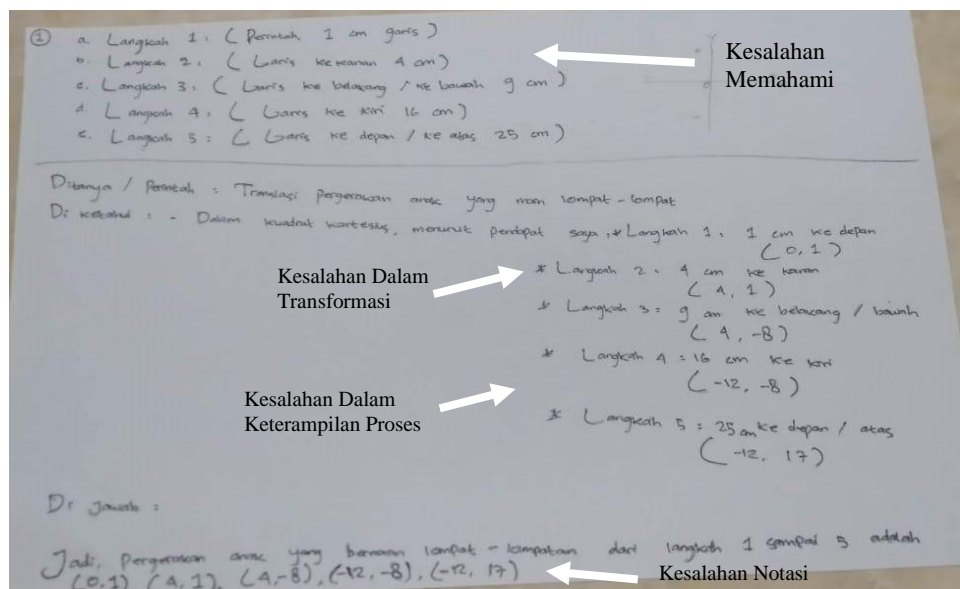 ① a. Langkah 1 : ( Perintah 1 cm garis )
b. Langkah 2 : ( Garis ke kanan 4 cm )
c. Langkah 3 : ( Garis ke belakang / ke bawah 9 cm )
d. Langkah 4 : ( Garis ke kiri 16 cm )
e. Langkah 5 : ( Garis ke depan / ke atas 25 cm )
Kesalahan
Memahami
Ditanya / Perintah : Translasi pergerakan anak yang main lompat - lompat
Di ketahui : - Dalam kuadrat kartesius, menurut pendapat saya : * Langkah 1 : 1 cm ke depan
( 0, 1 )
Kesalahan Dalam
Transformasi
* Langkah 2 : 4 cm ke kanan
( 4, 1 )
* Langkah 3 : 9 cm ke belakang / bawah
( 4, -8 )
* Langkah 4 : 16 cm ke kiri
( -12, -8 )
Kesalahan Dalam
Keterampilan Proses
* Langkah 5 : 25 cm ke depan / atas
( -12, 17 )
Di jawab :
Jadi, Pergerakan anak yang bermain lompat - lompatan dari langkah 1 sampai 5 adalah
(0,1) (4,1), (4,-8), (-12, -8), (-12, 17)
Kesalahan Notasi